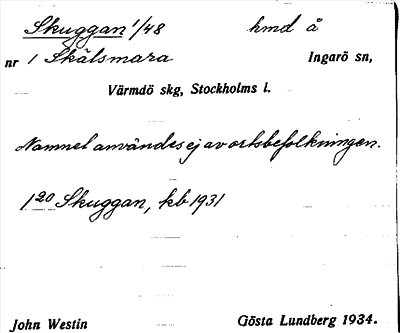 Skuggan 1/48 hmd å
nr 1 Skälsmara Ingarö sn,
Värmdö skg, Stockholms l.
Namnet användes ej av ortsbefolkningen.
1²⁰ Skuggan, kb 1931
John Westin Gösta Lundberg 1934.